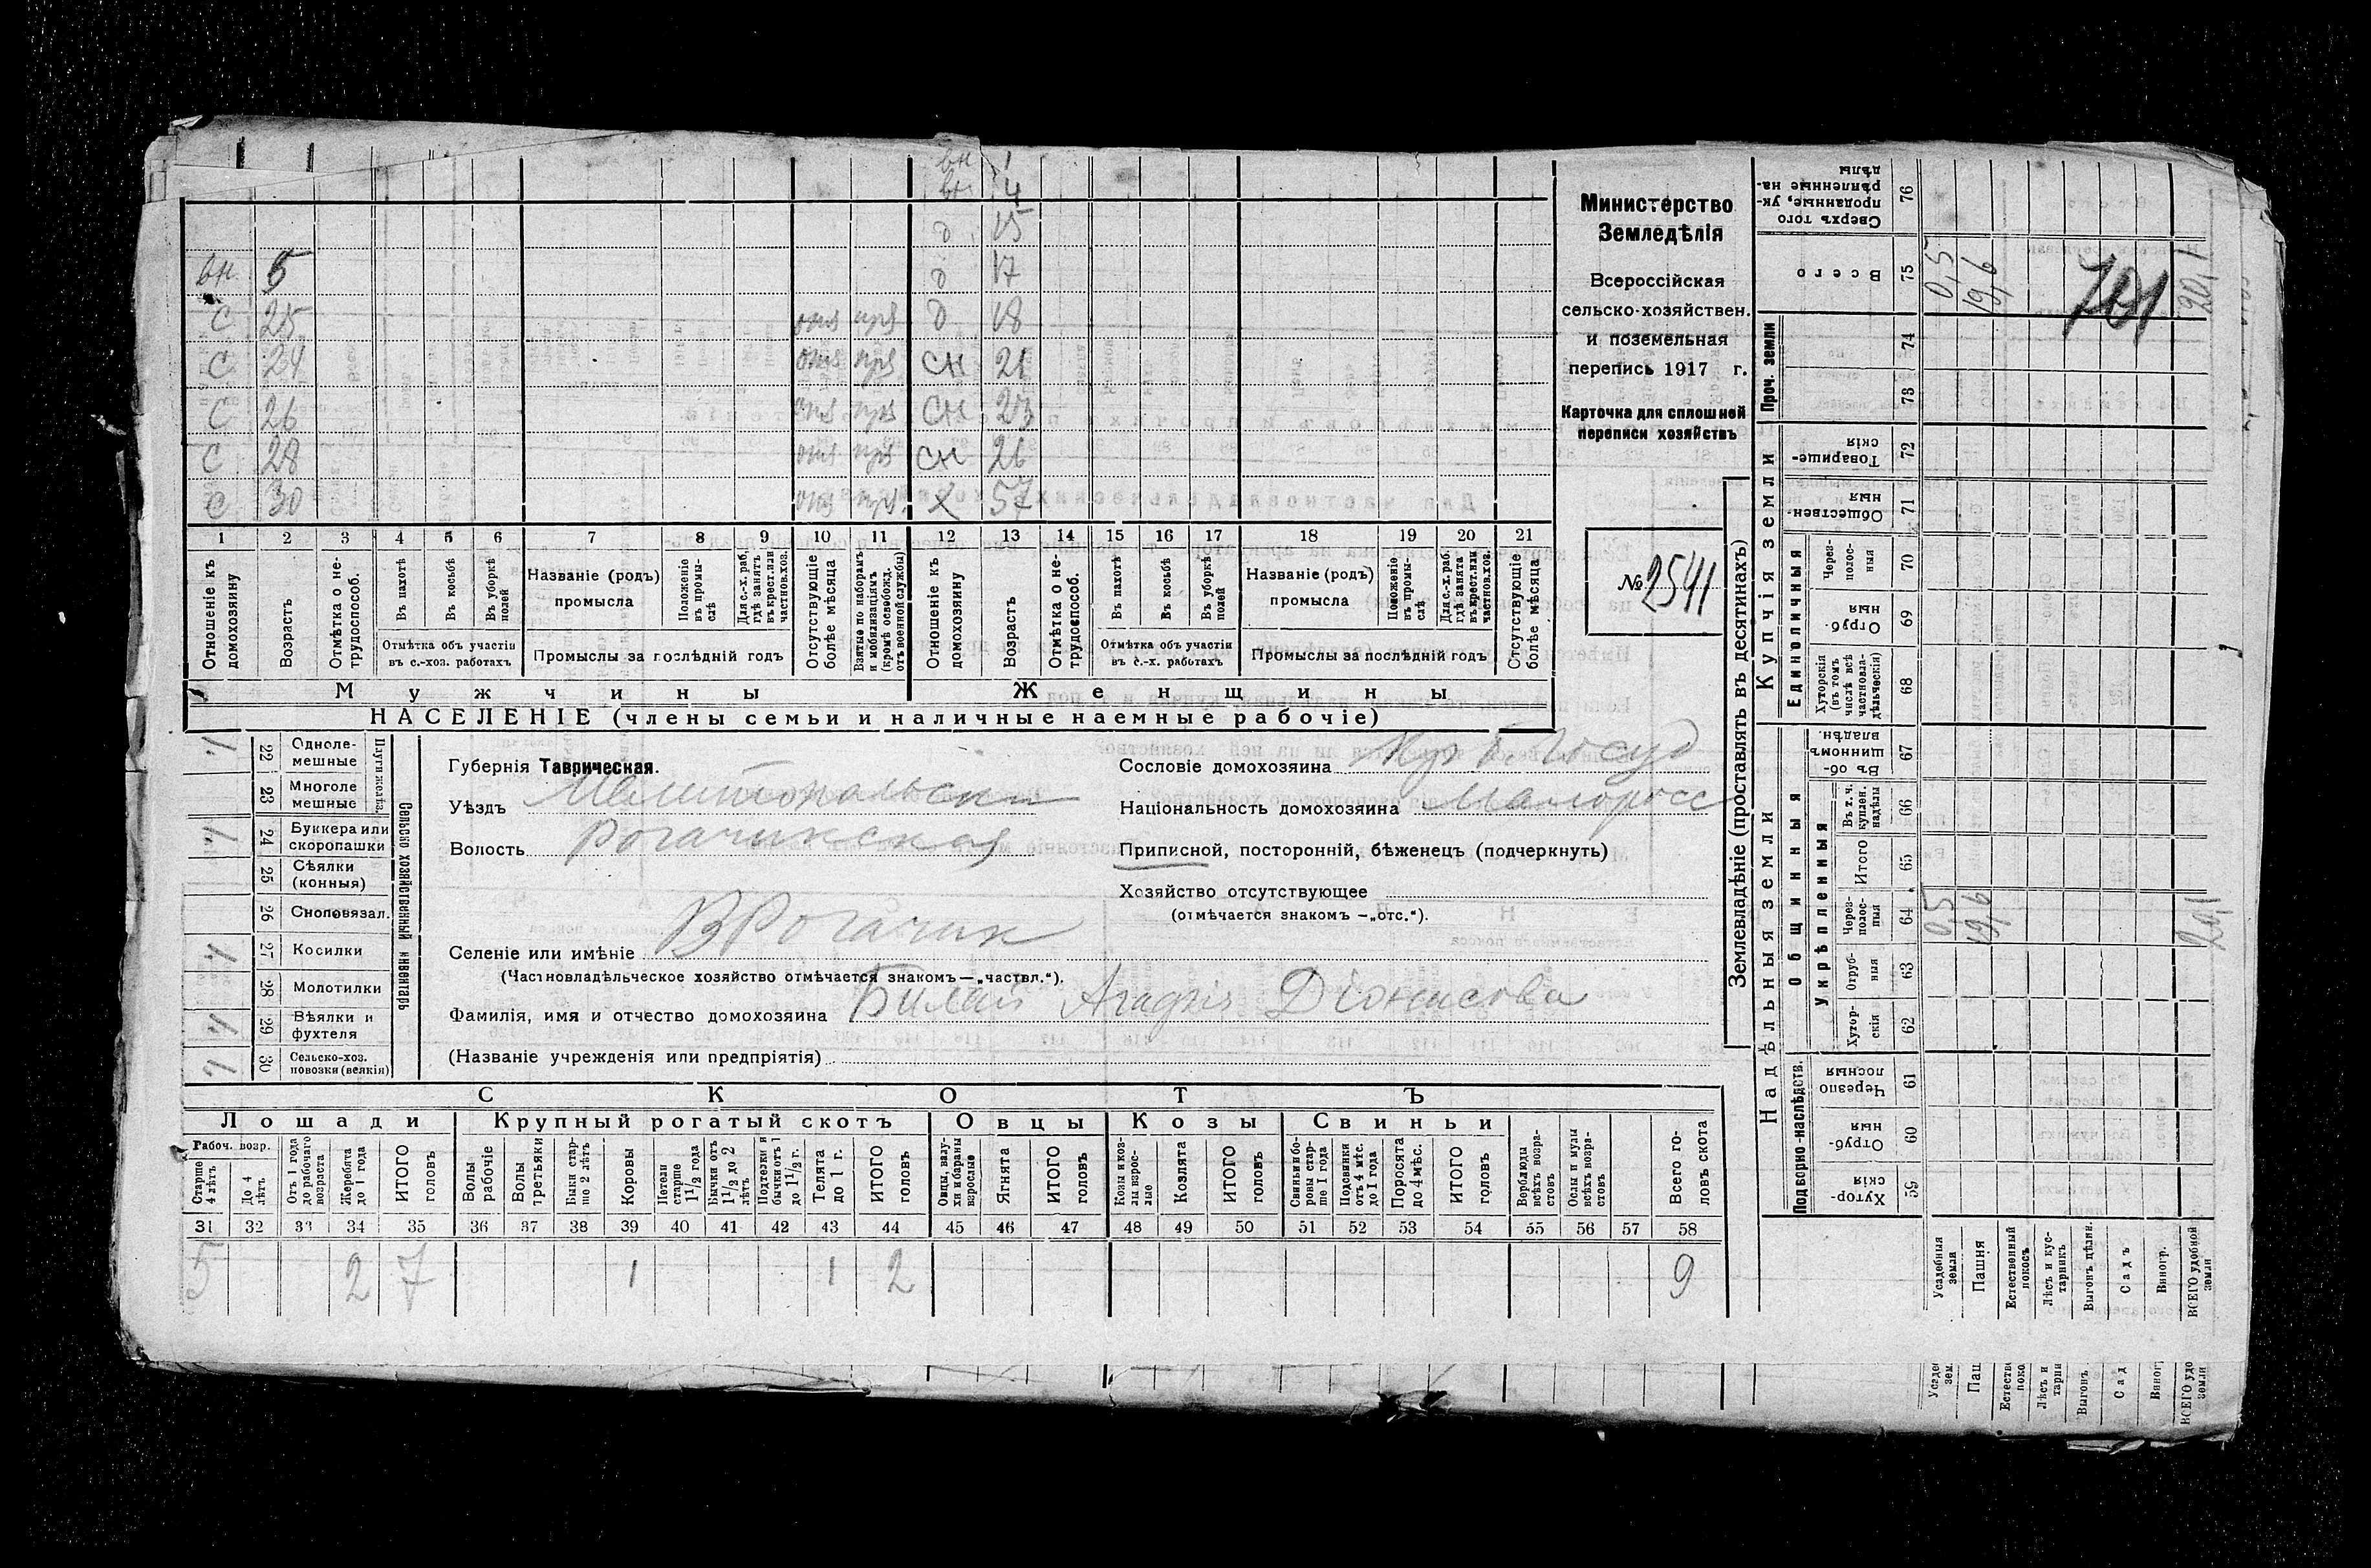 вн 1
вн 4
д 15
вн 5 д 17
с 25 отс пря д 18
с 24 отс пря сн 21
с 26 отс пря сн 23
с 28 отс пря сн 26
с 30 отс пря х 57
1 2 3 4 5 6 7 8 9 10 11 12 13 14 15 16 17 18 19 20 21
Отношеніе къ домохозяину
Возрастъ
Отмѣтка о нетрудоспособ.
Въ пахотѣ
Въ косьбѣ
Въ уборкѣ полей
Отмѣтка объ участіи въ с.-хоз. работахъ
Названіе (родъ) промысла
Положеніе въ промыслѣ
Для с.-х. раб. гдѣ занятъ въ крест. или частнов. хоз.
Промыслы за послѣдній годъ
Отсутствующіе болѣе мѣсяца
Взятые по наборамъ и мобилизаціямъ (кромѣ освобожд. отъ военной службы)
Отношеніе къ домохозяину
Возрастъ
Отмѣтка о нетрудоспособ.
Въ пахотѣ
Въ косьбѣ
Въ уборкѣ полей
Отмѣтка объ участіи въ с.-х. работахъ
Названіе (родъ) промысла
Положеніе въ промыслѣ
Для с.-х. раб. гдѣ занята въ крест. или частнов. хоз.
Промыслы за послѣдній годъ
Отсутствующіе болѣе мѣсяца
Мужчины Женщины
НАСЕЛЕНІЕ (члены семьи и наличные наемные рабочіе)
Министерство
Земледѣлія
Всероссійская
сельско-хозяйствен.
и поземельная
перепись 1917 г.
Карточка для сплошной
переписи хозяйствъ
№ 2541
Плуги желѣз.
22 Однолемешные 1
23 Многолемешные
24 Буккера или скоропашки 1
25 Сѣялки (конныя)
26 Сноповязал.
27 Косилки 1
28 Молотилки
29 Вѣялки и фухтеля 1
30 Сельско-хоз. повозки (велкія) 1
Сельско хозяйственный инвентарь
Губернія Таврическая.
Уѣздъ Мелитопольски
Волость Рогачинская
Селеніе или имѣніе В Рогачик
(Частновладѣльческое хозяйство отмѣчается знакомъ — „частвл.“).
Фамилія, имя и отчество домохозяина Билай Агафія Діонисова
(Названіе учрежденія или предпріятія)
Сословіе домохозяина Кр б. Госуд
Національность домохозяина Малоросс
Приписной, посторонній, бѣженецъ (подчеркнуть)
Хозяйство отсутствующее
(отмѣчается знакомъ — „отс.“).
СКОТЪ
Лошади Крупный рогатый скотъ Овцы Козы Свиньи
Рабоч. возр.
Старше 4 лѣтъ
До 4 лѣтъ
Отъ 1 года до рабочаго возраста
Жеребята до 1 года
ИТОГО головъ
Волы рабочіе
Волы третьяки
Быки старше 2 лѣтъ
Коровы
Нетели старше 1 1/2 года
Бычки отъ 1 1/2 до 2 лѣтъ
Подтелки и бычки отъ 1 до 1 1/2 г.
Телята до 1 г.
ИТОГО головъ
Овцы, валухи и бараны взрослые
Ягнята
ИТОГО головъ
Козы и козлы взрослые
Козлята
ИТОГО головъ
Свиньи и боровы старше 1 года
Подсвинки отъ 4 мѣс. до 1 года
Поросята до 4 мѣс.
ИТОГО головъ
Верблюды всѣхъ возрастовъ
Ослы и мулы всѣхъ возрастовъ
Всего головъ скота
31 32 33 34 35 36 37 38 39 40 41 42 43 44 45 46 47 48 49 50 51 52 53 54 55 56 57 58
5 2 7 1 1 2 9
Землевладѣніе (проставлять въ десятинахъ)
Надѣльныя земли
Купчія земли
Проч. земли
Сверхъ того проданные, укрѣпленные надѣлы 76
Всего 75 0,5 19,6 20,1
701
74
73
Товарищескія 72
Общественныя 71
Единоличныя
Черезполосныя 70
Отруб-ныя 69
Хуторскія (въ томъ числѣ всѣ частновладѣльческія) 68
Общинныя
Въ общинномъ владѣн. 67
Укрѣпленныя
Въ т. ч. куплен. надѣлы 66
Итого 65
Черезполосныя 64 0,5 19,6 20,1
Отрубныя 63
Хуторскія 62
Подворно-наслѣдств.
Черезполосныя 61
Отрубныя 60
Хуторскія 59
Усадебныя земли
Пашня
Естественный покосъ
Лѣсъ и кустарникъ
Выгонъ цѣлин.
Садъ
Виногр.
ВСЕГО удобной земли